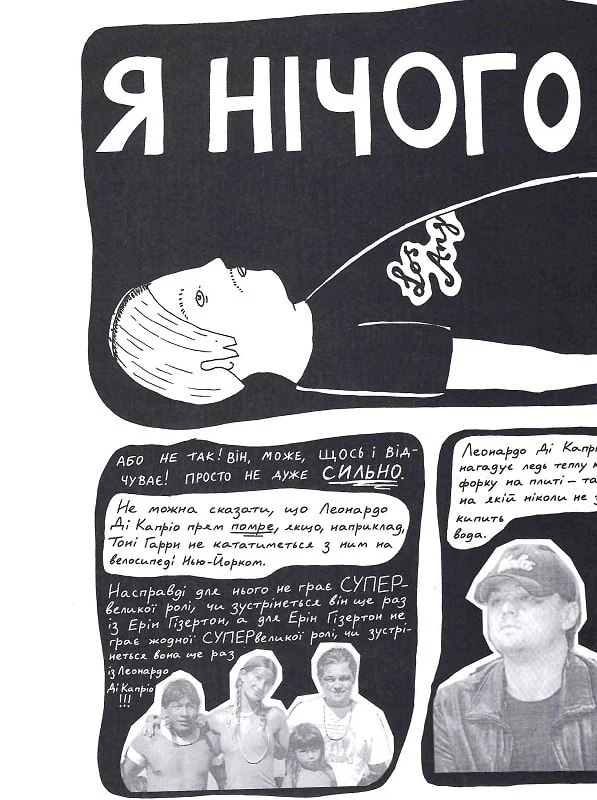 Я НІЧОГО
Los
Ang
АБО НЕ ТАК! ВІН, МОЖЕ, ЩОСЬ І ВІД-
ЧУВАЄ! ПРОСТО НЕ ДУЖЕ СИЛЬНО.
Не можна сказати, що Леонардо
Ді Капріо прям помре, якщо, наприклад,
Тоні Гаррн не кататиметься з ним на
велосипеді Нью-Йорком.
Насправді для нього не грає СУПЕР-
великої ролі, чи зустрінеться він ще раз
із Ерін Гізертон, а для Ерін Гізертон не
грає жодної СУПЕРвеликої ролі, чи зустрі-
неться вона ще раз
із Леонардо
Ді Капріо
!!!
Леонардо Ді Капрі
нагадує ледь теплу к
форку на плиті – та
на якій ніколи не з
кипить
вода.